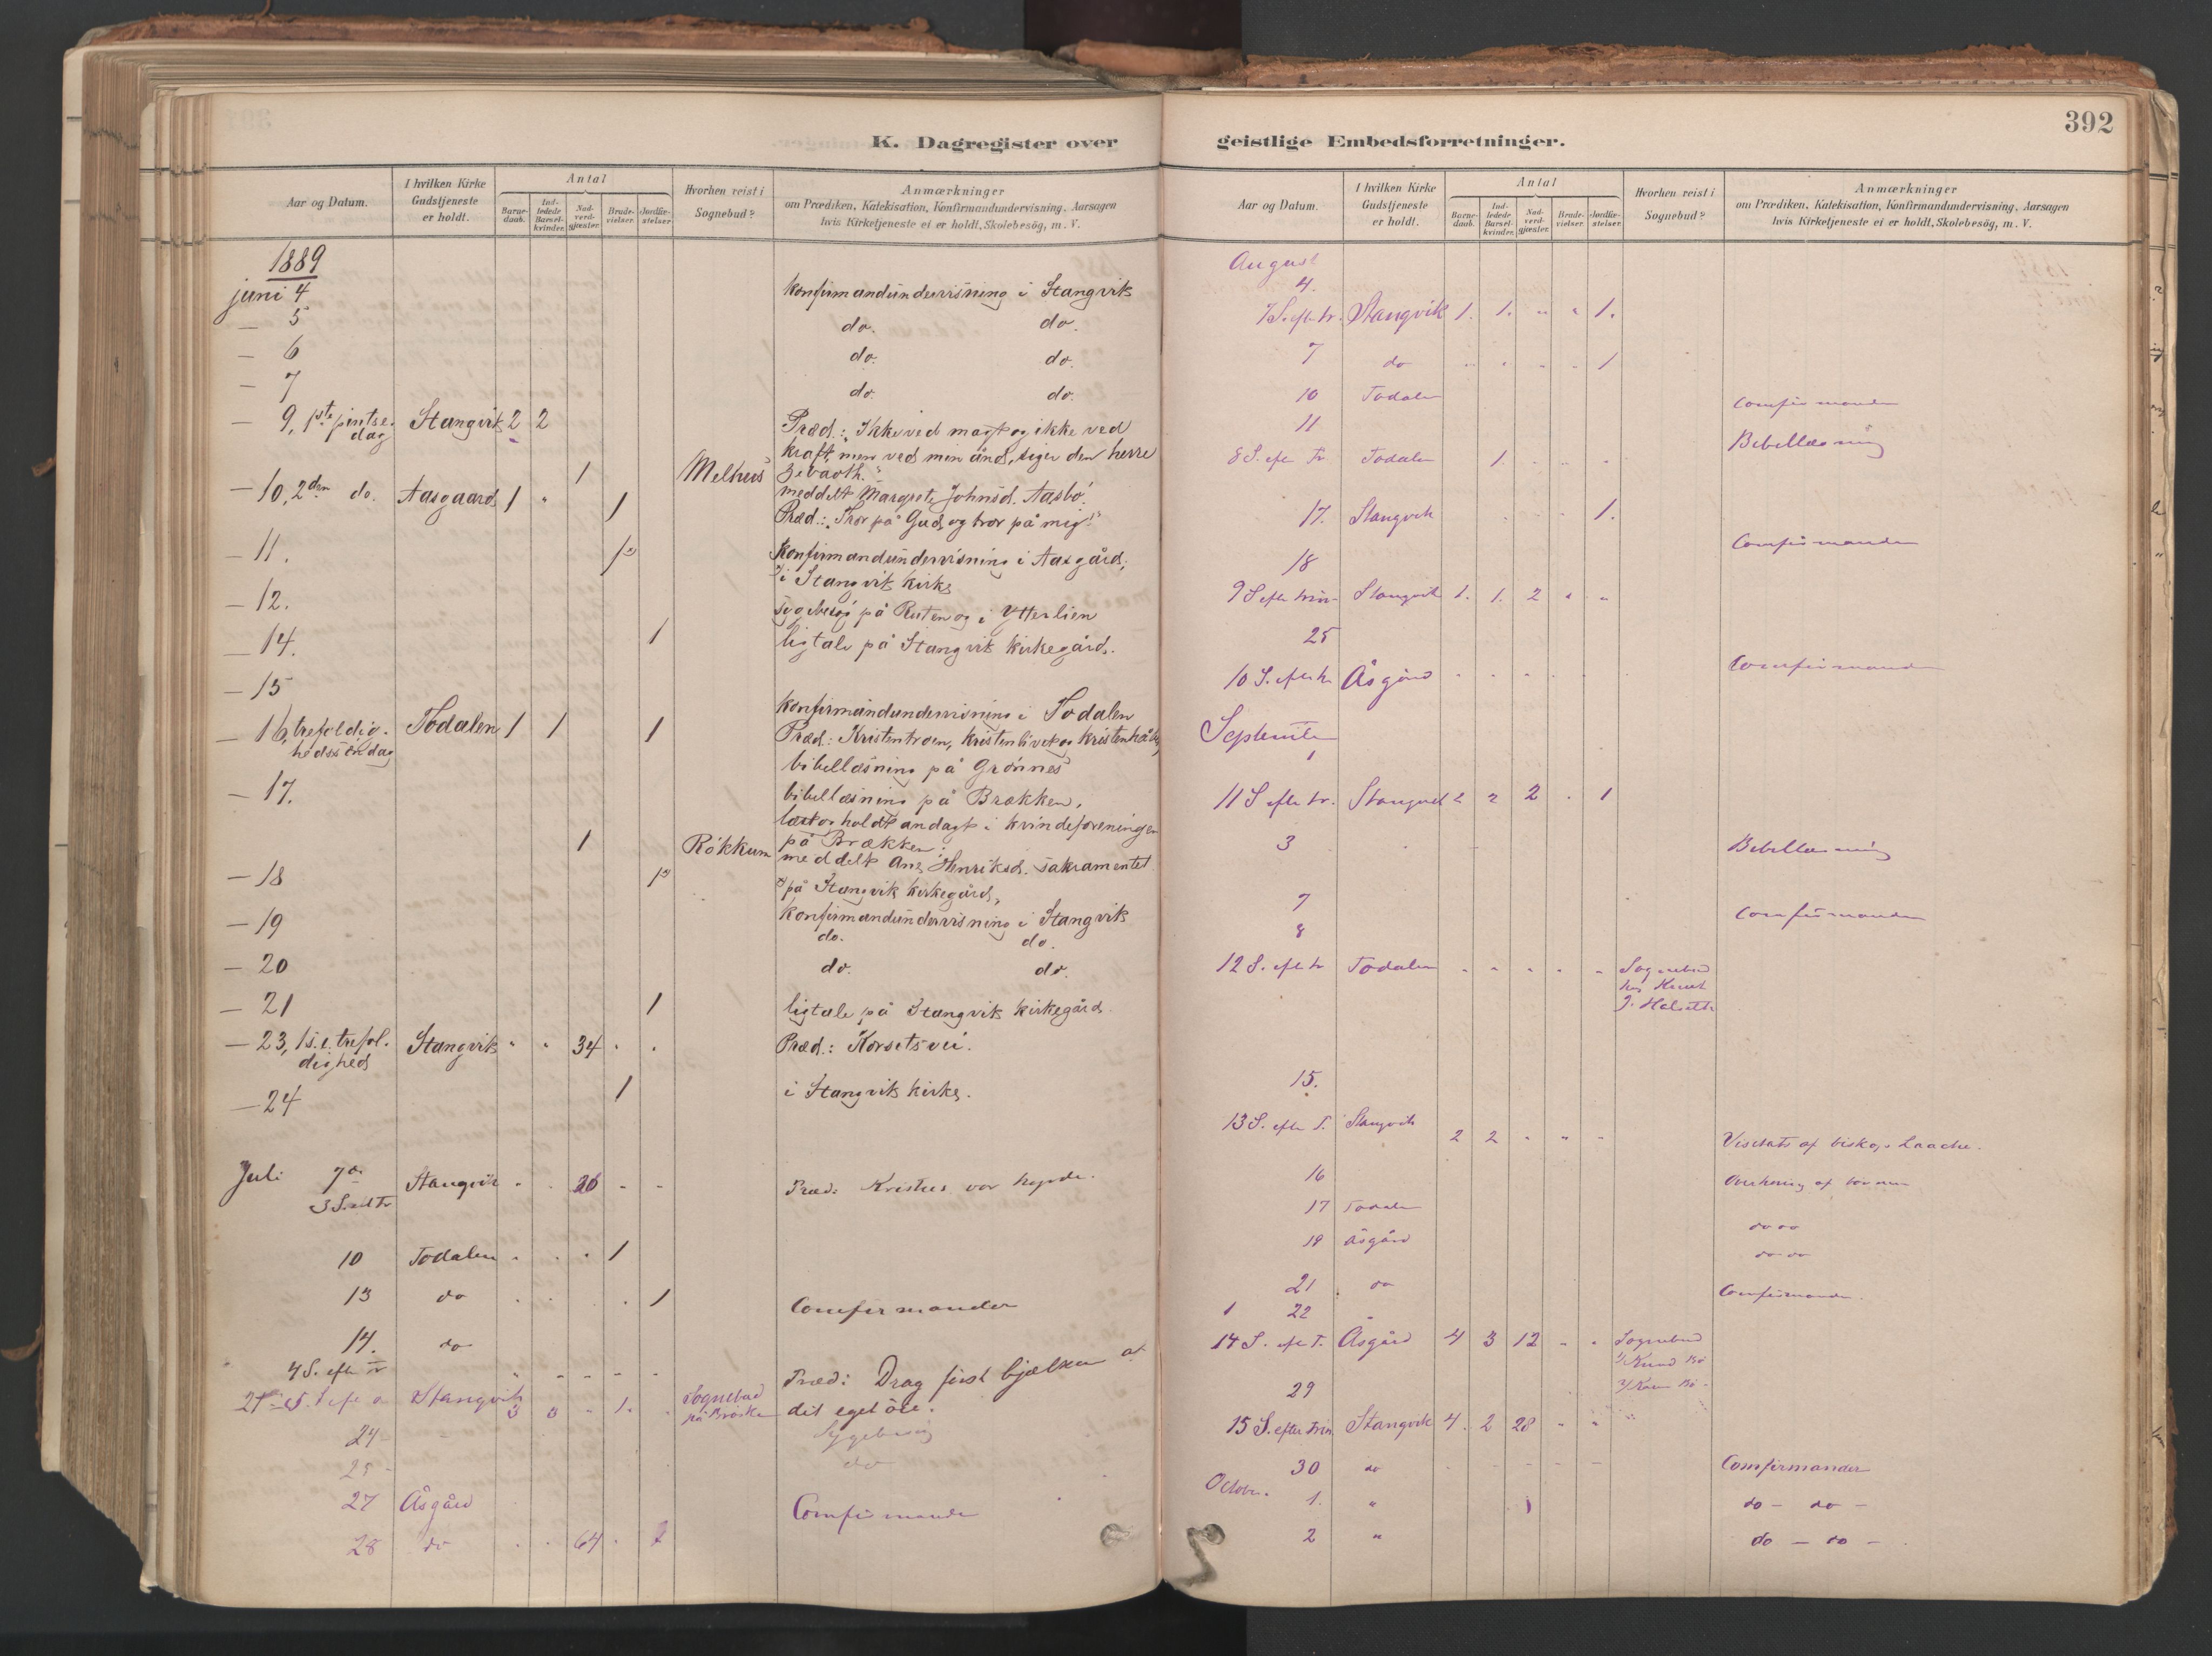 K. Dagregister over
Aar og Datum.
I hvilken Kirke Gudstjeneste er holdt.
Antal
Barnedaab.
Indledede Barselkvinder.
Nadverdgjæster.
Brudevielser.
Jordfæstelser.
Hvorhen reist i Sognebud?
Anmærkninger
om Prædiken, Katekisation, Konfirmandundervisning, Aarsagen
hvis Kirketjeneste ei er holdt, Skolebesög, m. V.
1889
juni 4 konfirmandundervisning i Stangvik
— 5 do. do.
— 6 do. do.
— 7 do. do.
— 9, 1ste pintsedag Stangvik 2 2 Præd.: "Ikke ved magt og ikke ved
kraft, men ved min ånd, siger den herre
zebaoth."
1 Melhus meddelt Margrete Johnsd. Aasbø.
— 10, 2den do. Aasgaard 1 " 1 Præd.: "Tror på Gud, og tror på mig"
— 11. 1 konfirmandundervisning i Aasgård,
i Stangvik kirke
— 12. sygebesøg på Rusten og i Ytterlien
— 14. 1 ligtale på Stangvik kirkegård.
— 15 konfirmandundervisning i Todalen
— 16, trefoldighedssöndag Todalen 1 1 1 Præd.: Kristentroen, kristenlivet og kristenhåbet,
bibellæsning på Grønnes
— 17. bibellæsning på Brækken,
holdt andagt i kvindeforeningen
på Brækken.
1 Røkkum meddelt Ane Henriksd. sakramentet
— 18 1 på Stangvik kirkegård,
konfirmandundervisning i Stangvik
— 19 do. do.
— 20 do. do.
— 21 1 ligtale på Stangvik kirkegård.
— 23, 1 s. e. trefoldighed Stangvik " " 34 " " Præd.: Korsets vei.
— 24 1 i Stangvik kirke.
Juli 7de Stangvik " " 26 - - Præd: Kristus vor
10 Todalen 1
13 do 1 Comfirmander
14. do
4 S. efter tr Præd: Drag først bjælken af
dit eget öie.
21 Stangvik 3 3 " 1. Sognebud
24 Sygebesøg
25 do
27 Åsgård Comfirmander
28 do 64
geistlige Embedsforretninger.
392
Aar og Datum.
I hvilken Kirke Gudstjeneste er holdt.
Antal
Barnedaab.
Indledede Barselkvinder.
Nadverdgjæster.
Brudevielser.
Jordfæstelser.
Hvorhen reist i Sognebud?
Anmærkninger
om Prædiken, Katekisation, Konfirmandundervisning, Aarsagen
hvis Kirketjeneste ei er holdt, Skolebesög, m. V.
August
4.
7 S. efter tr. Stangvik 1. 1. " " 1.
7 do 1
10 Todalen Comfirmander
11 Bibellæsning
8 S. efter Tr. Todalen 1.
17. Stangvik 1.
18 Comfirmander
9 S efter trin Stangvik 1. 1. 2 " "
25
10 S. efter tr Åsgård Comfirmander
September
1
11 S efter tr. Stangvik 2 2 2 . 1
3 Bibellæsning
7 Comfirmander
8
12 S. efter tr Todalen Sognebud
hos Knut
J. Halseth
15.
13 S. efter T. Stangvik 2 2 Visitats af biskop Laache.
16 Overhøring af
17 Todalen do do
18 Åsgård do do
21 do Comfirmander.
22
14 S. efter T. Åsgård 4 3 12 Sognebud
29
15 S. efter trin. Stangvik 4. 2 28
30 do Comfirmander
Octobr. 1. " do - do -
2 " do - do -